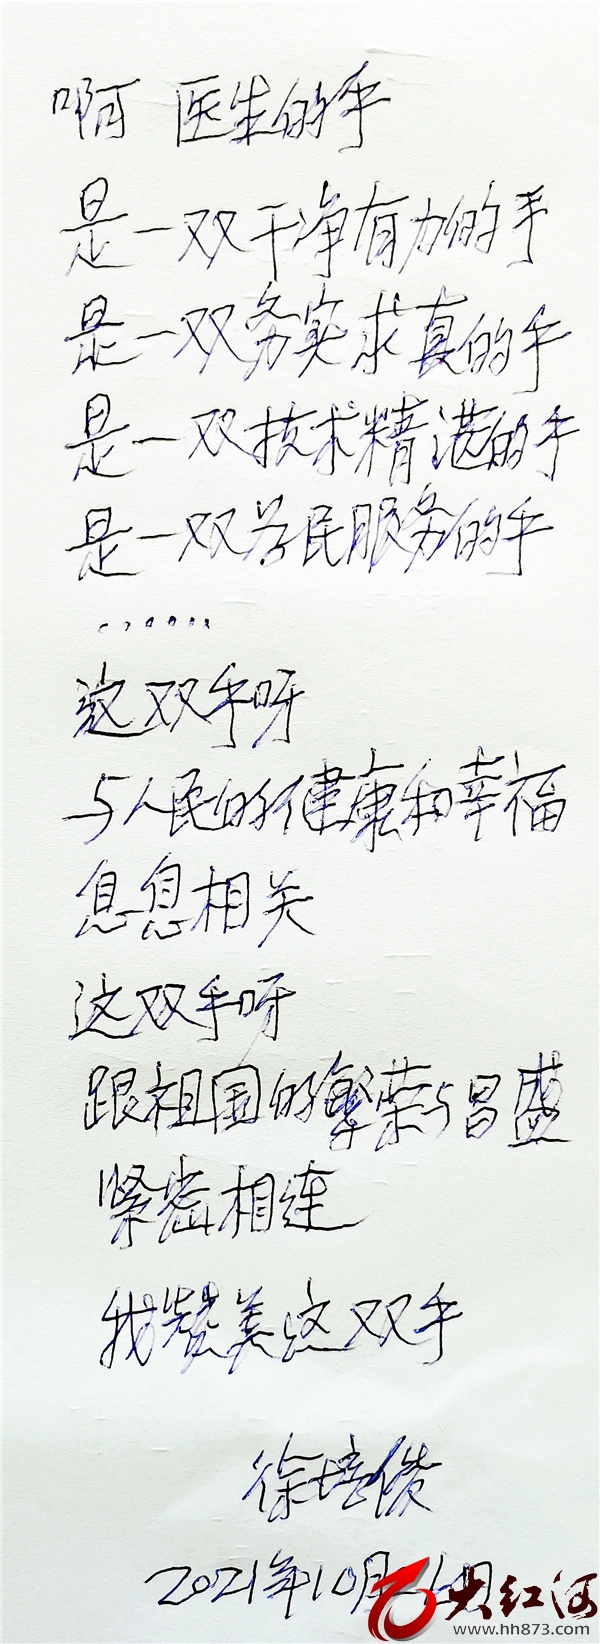 啊 医生的手
是一双干净有力的手
是一双务实求真的手
是一双技术精湛的手
是一双为民服务的手
……
这双手呀
与人民的健康和幸福
息息相关
这双手呀
跟祖国的繁荣与昌盛
紧密相连
我赞美这双手
徐培俊
2021年10月 日
大红河
www.hh873.com